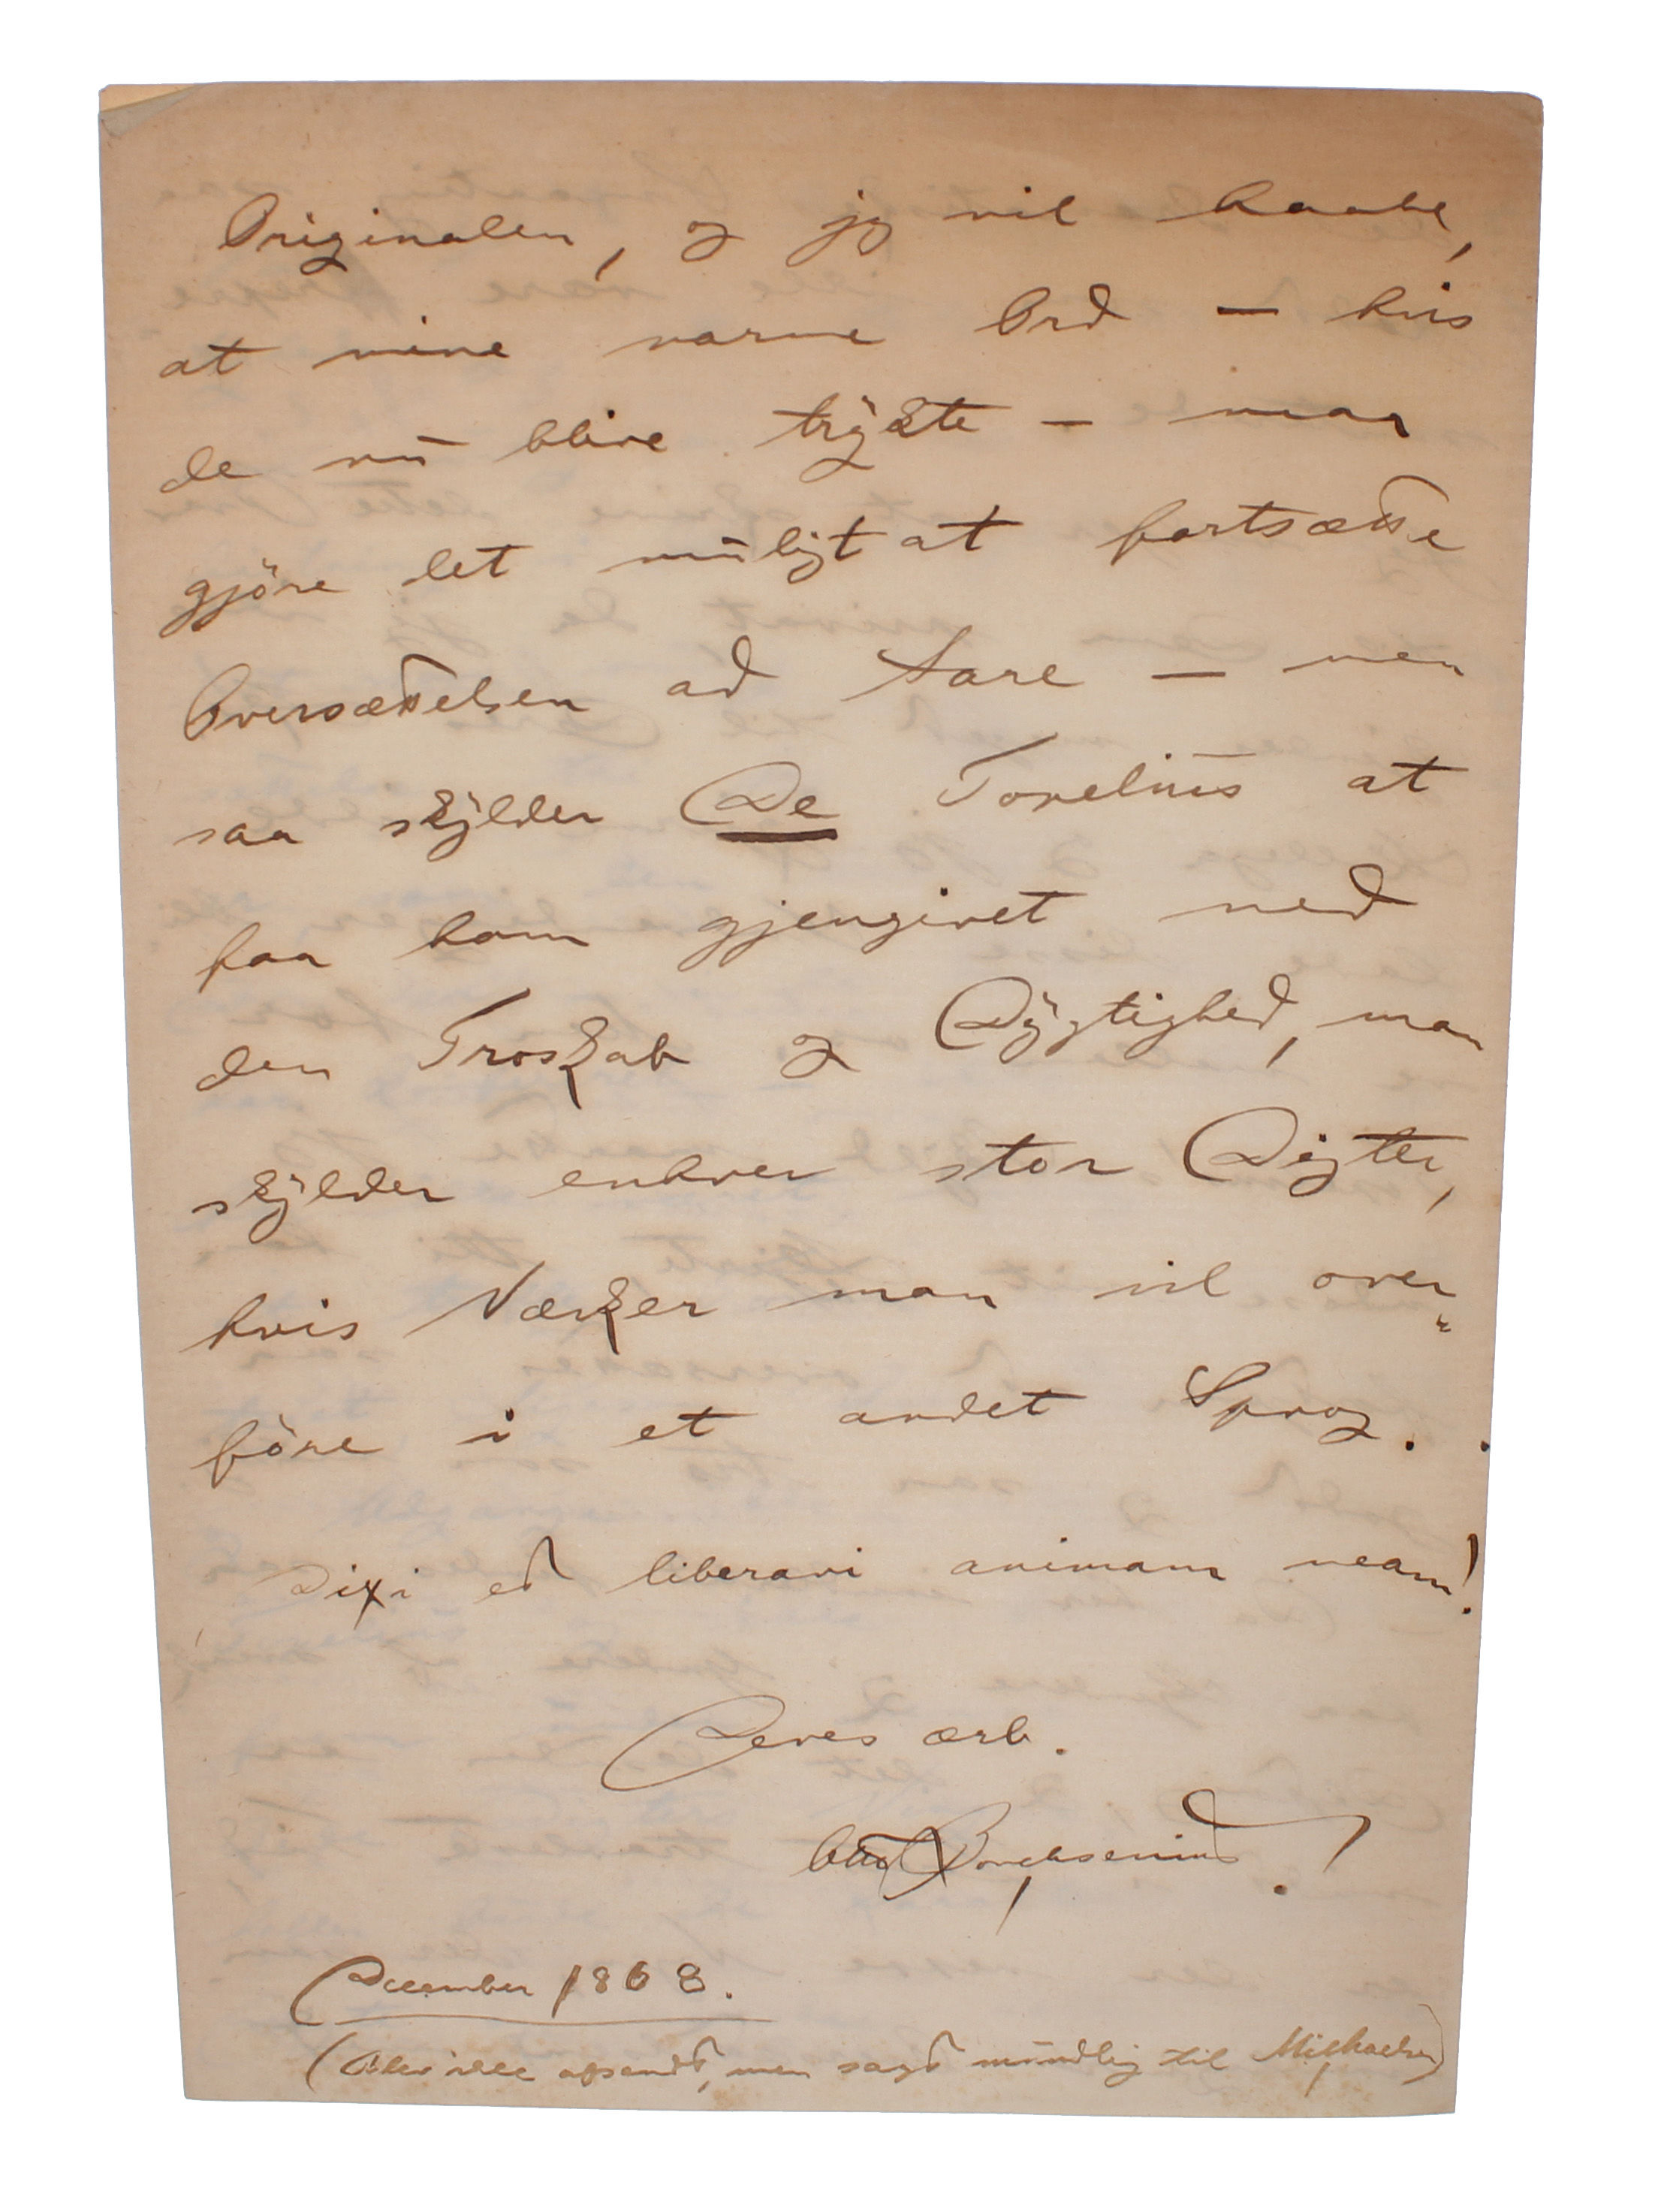 Originalen, og jeg vil haabe,
at mine varme Ord — hvis
de nu blive trÿkte — maa
gjöre let muligt at fortsætte
Oversættelsen ad Aare — men
saa skÿlder De Topelius at
faa ham gjengivet med
den Troskab og Dÿgtighed, man
skÿlder enhver stor Digter,
hvis Værker man vil over-
före i et andet Sprog.
Dixi et liberavi animam meam!
Deres ærb.
Otto Borchsenius.
December 1868.
(Blev ikke afsendt, men sagt mundlig til Michaelsen)